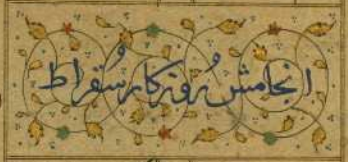 انجامش روزکار سقراط